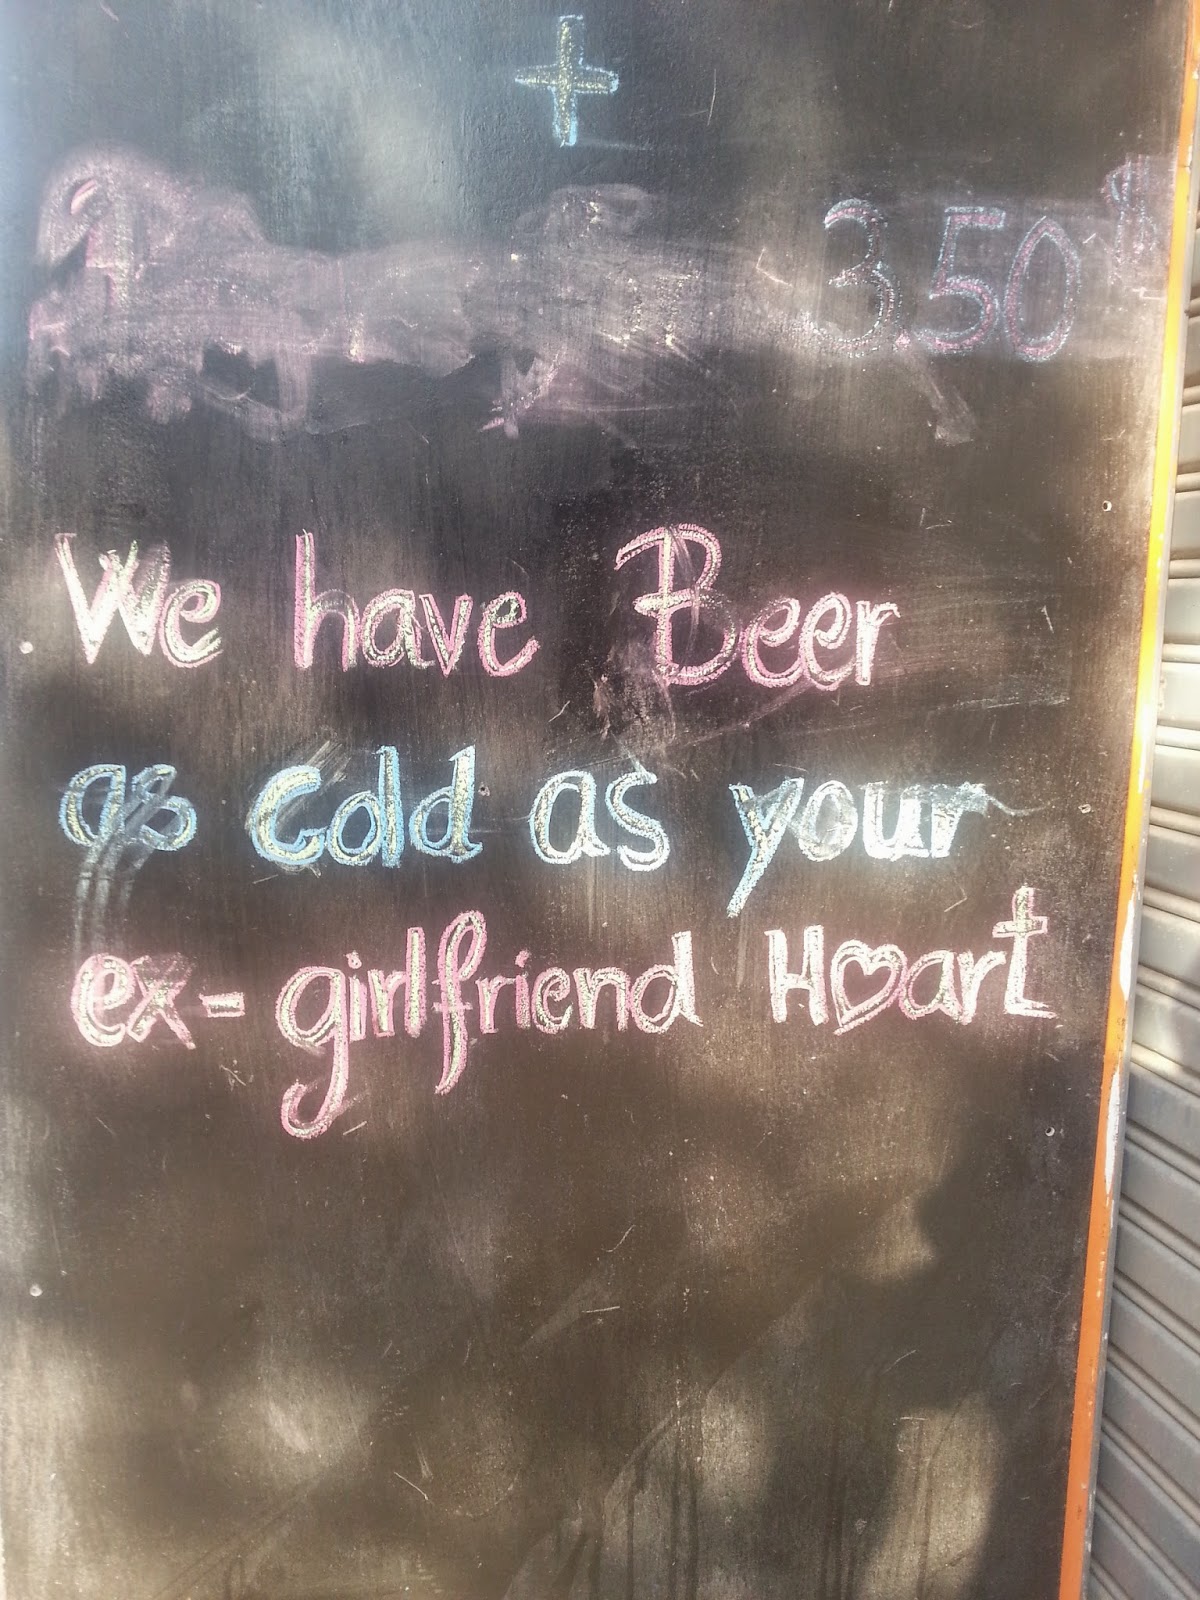 +
3.50
We have Beer
as cold as your
ex-girlfriend H♡art